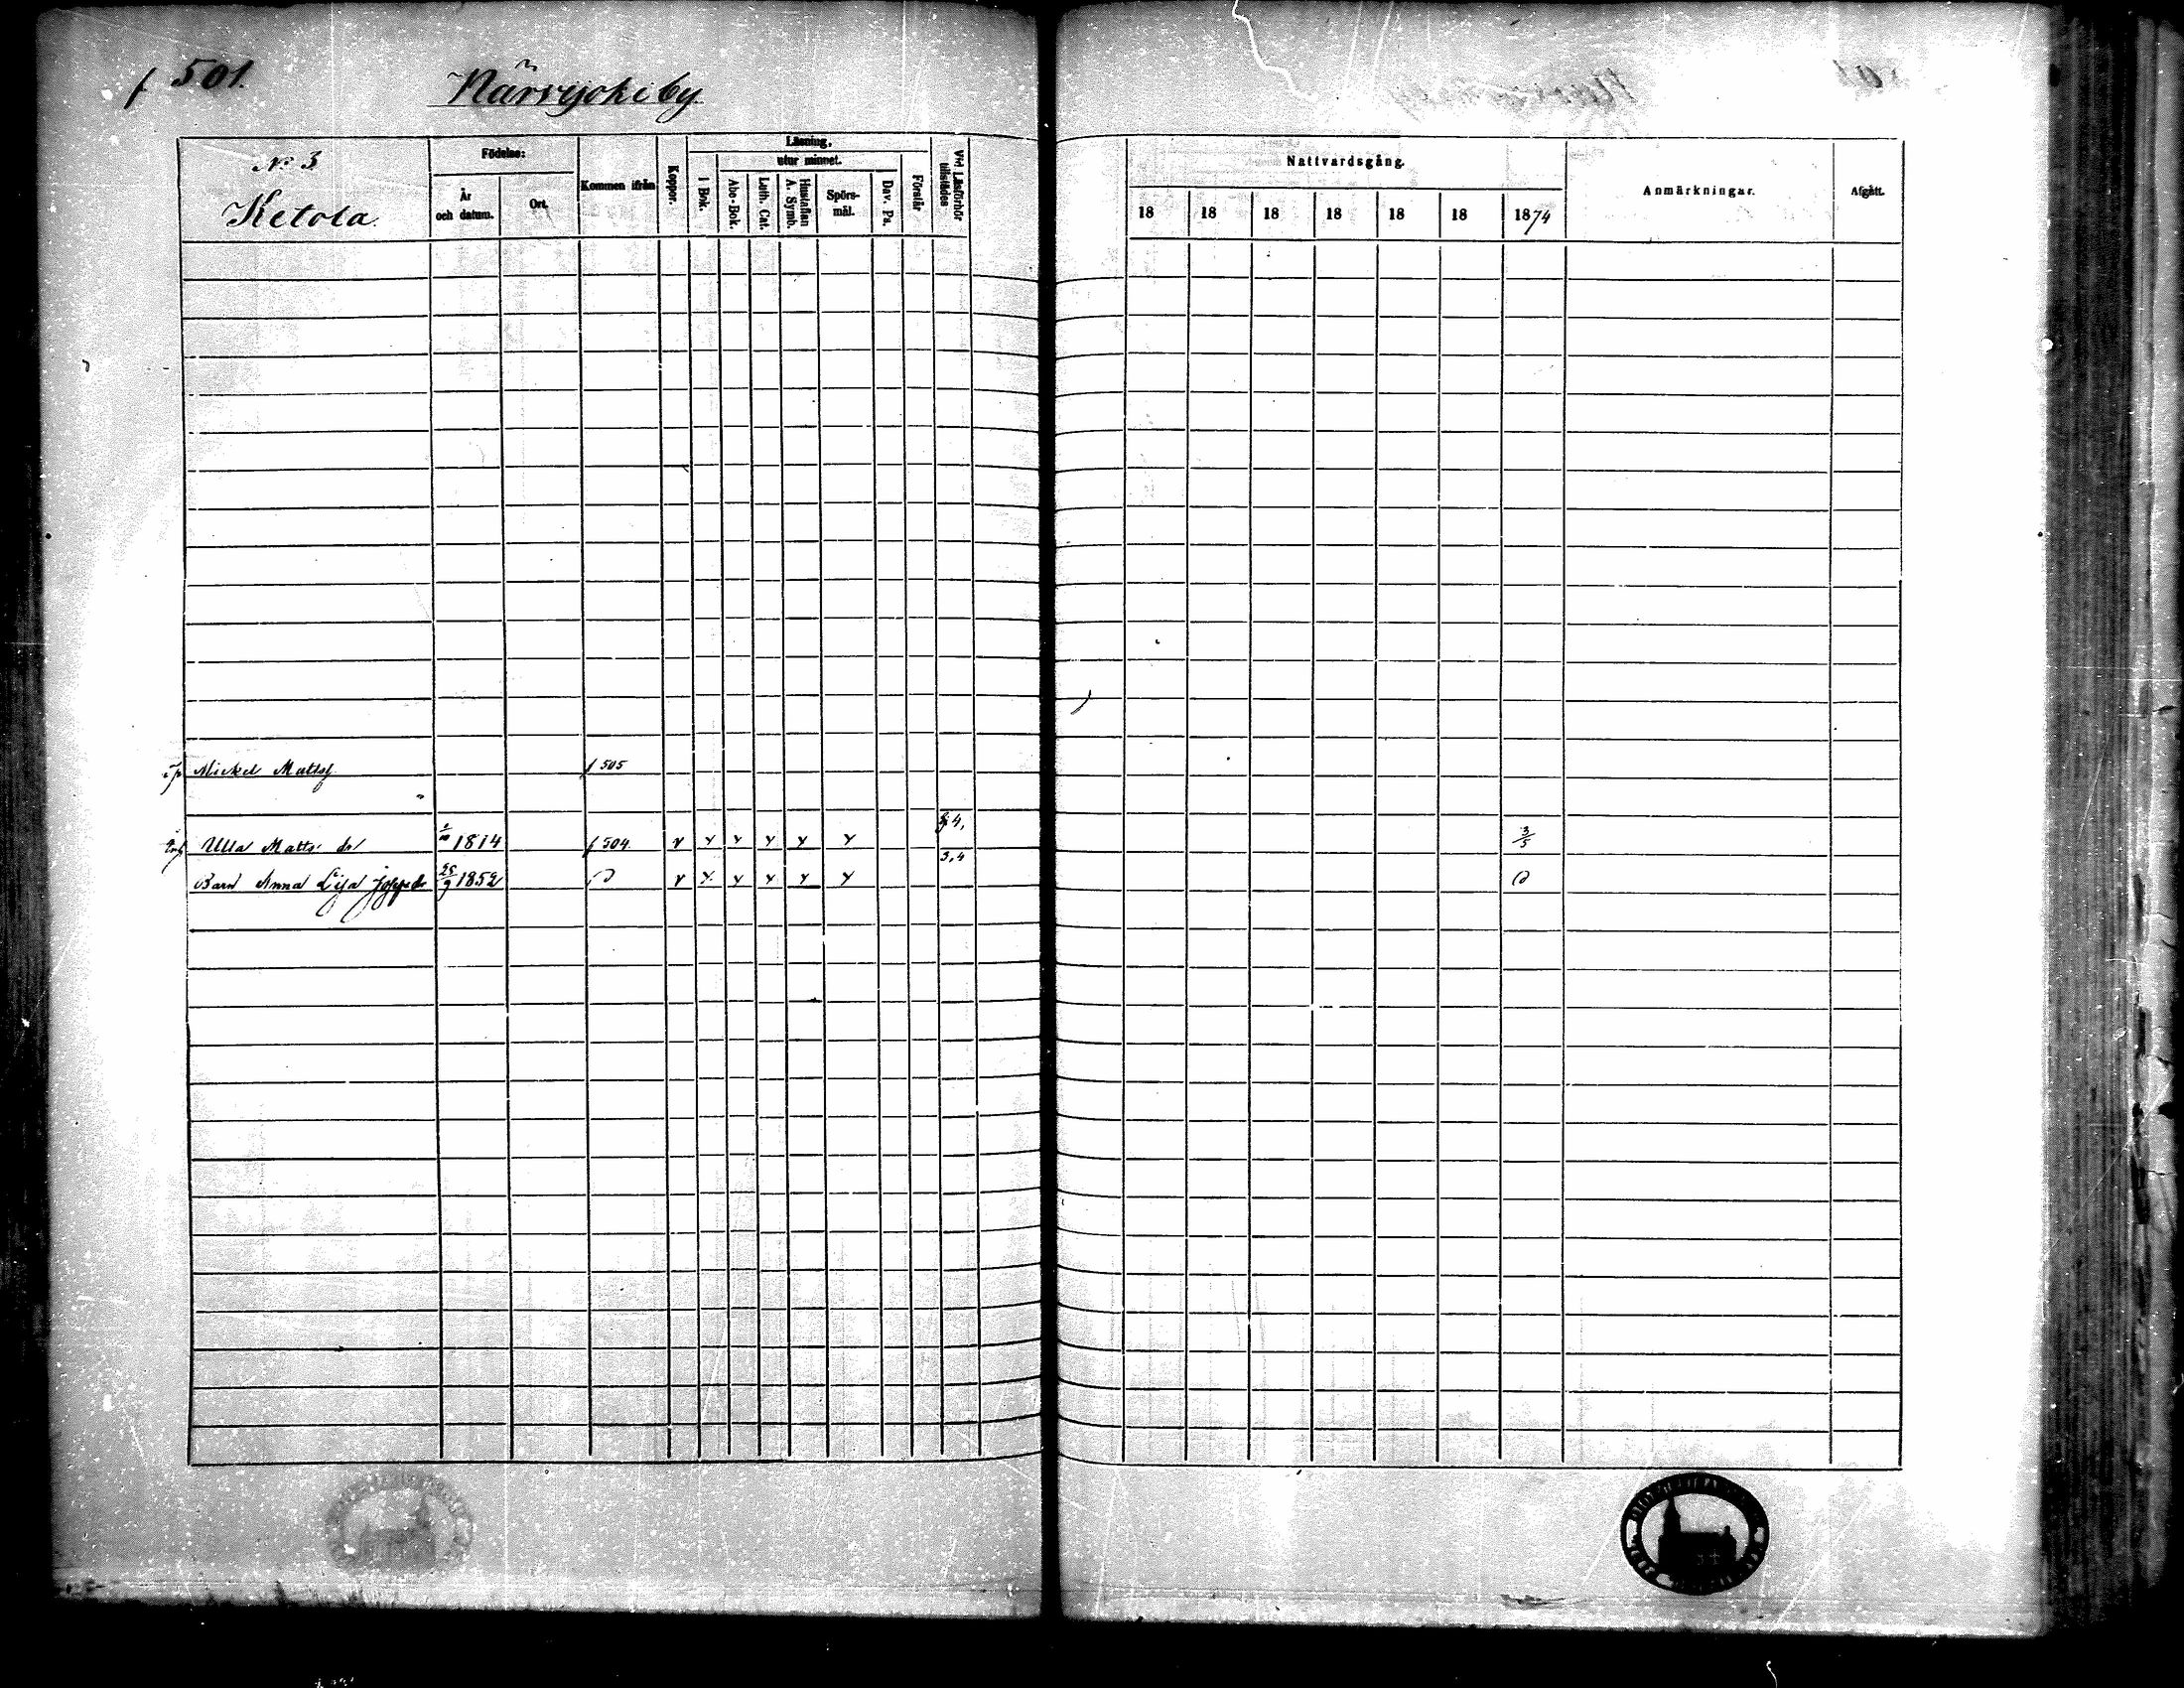 f 501.
Närvijoki by
No 3
Ketola.
Födelse:
År och datum.
Ort.
Kommen ifrån
Koppor.
Läsning,
i Bok.
utur minnet.
Abc-Bok.
Luth. Cat.
Hustaflan A. Symb.
Spörsmål.
Dav. Ps.
Förstår
Vid Läsförhör tillstädes
Nattvardsgång.
18 18 18 18 18 18 1874
Anmärkningar.
Afgått.
Mickel Matts f 505
Ulla Matts dr 1814 f 504 3/5
3,4
Barn Anna Lisa Josefs dr 25/9 1852